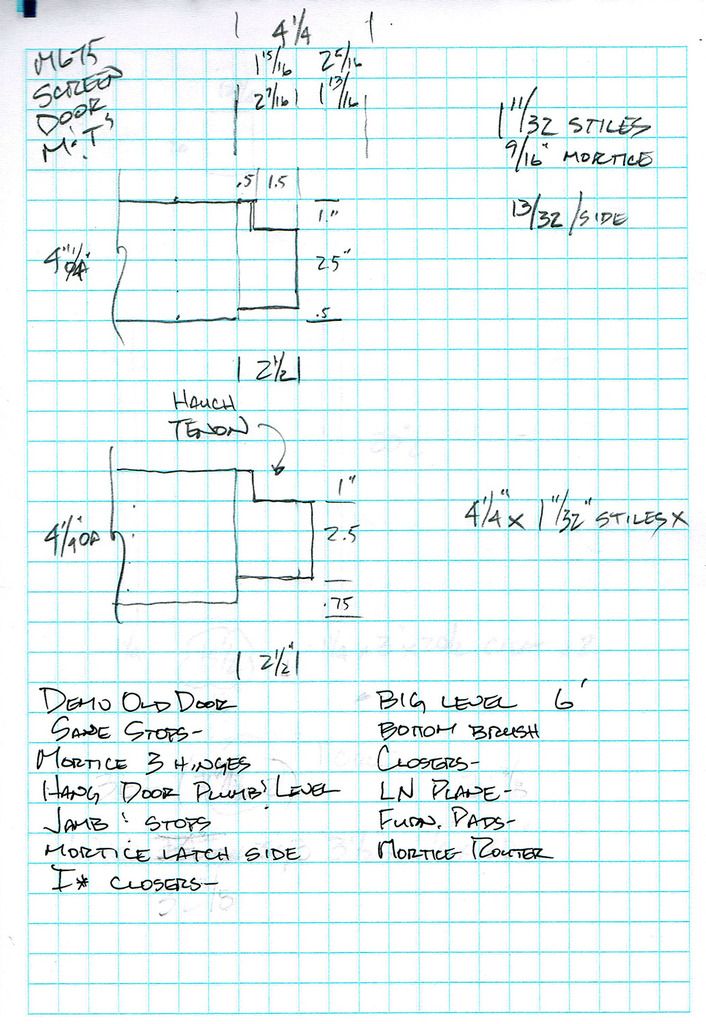 4 1/4
1 15/16 2 5/16
2 7/16 1 13/16
M675
SCREEN
DOOR
M:T's
1 11/32 STILES
9/16" MORTICE
13/32 /SIDE
.5 1.5
1"
2.5"
.5
2 1/2
HAUCH
TENON
1"
2.5
.75
4 1/4" OA
4 1/4" x 1 11/32" STILES x
2 1/2"
DEMO OLD DOOR
SAVE STOPS-
MORTICE 3 HINGES
HANG DOOR PLUMB: LEVEL
JAMB : STOPS
MORTICE LATCH SIDE
I* CLOSERS-
BIG LEVEL 6'
BOTTOM BRUSH
CLOSERS-
LN PLANE-
FURN. PADS-
MORTICE ROUTER